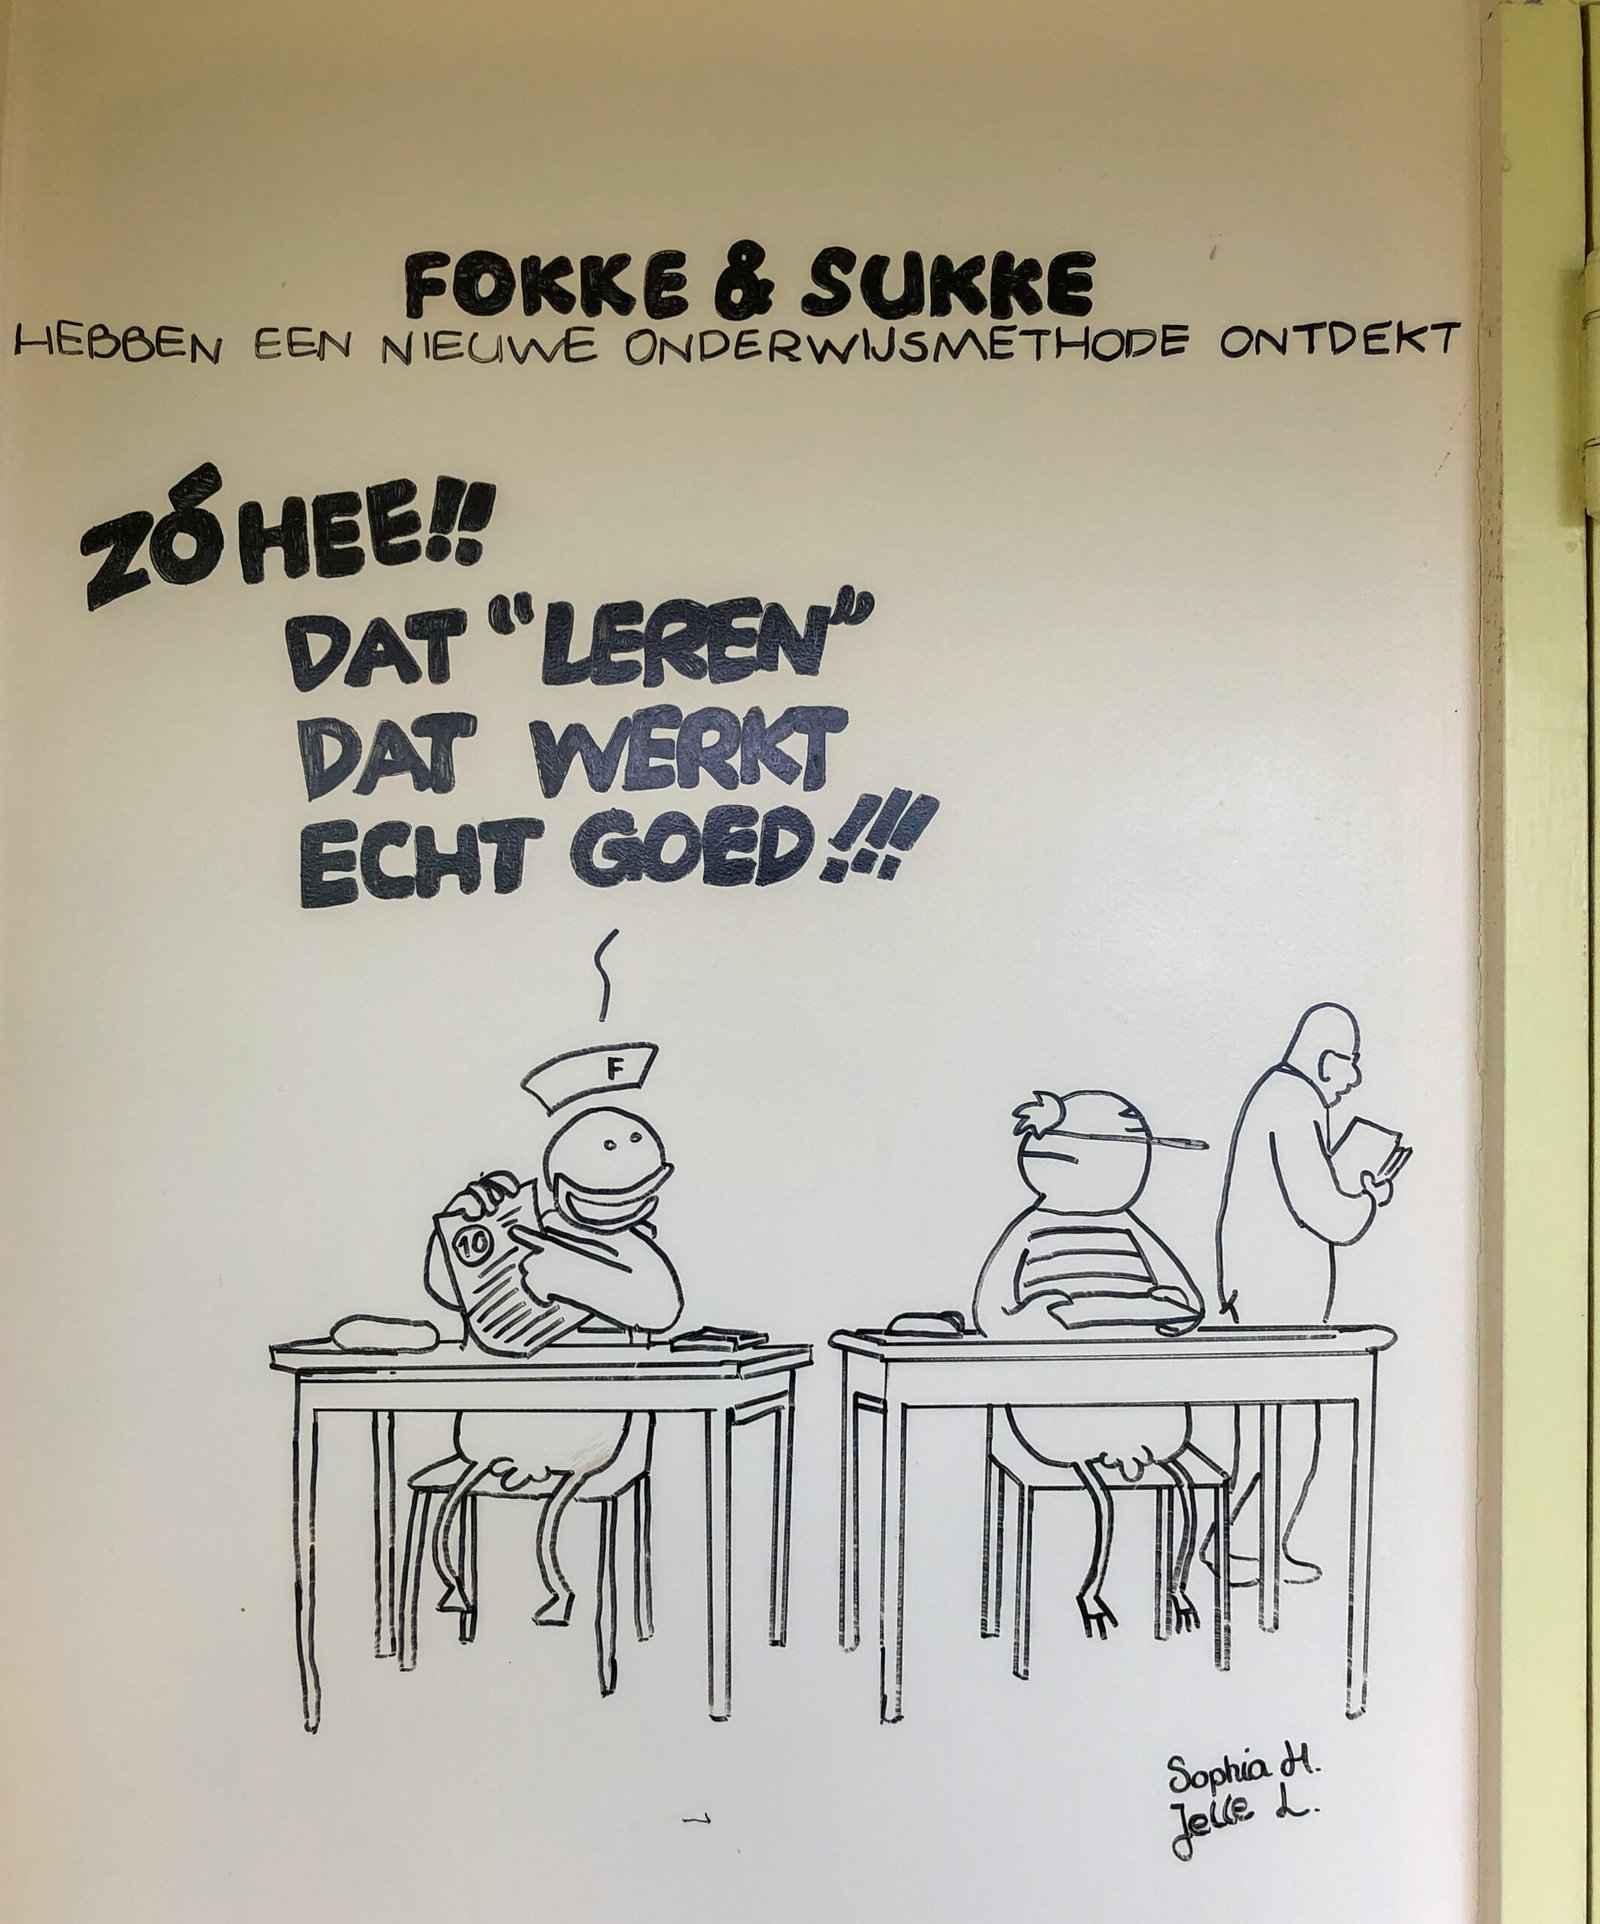 FOKKE & SUKKE
HEBBEN EEN NIEUWE ONDERWIJSMETHODE ONTDEKT
ZÓ HEE!!
DAT “LEREN”
DAT WERKT
ECHT GOED!!!
F
10
Sophia H.
Jelle L.